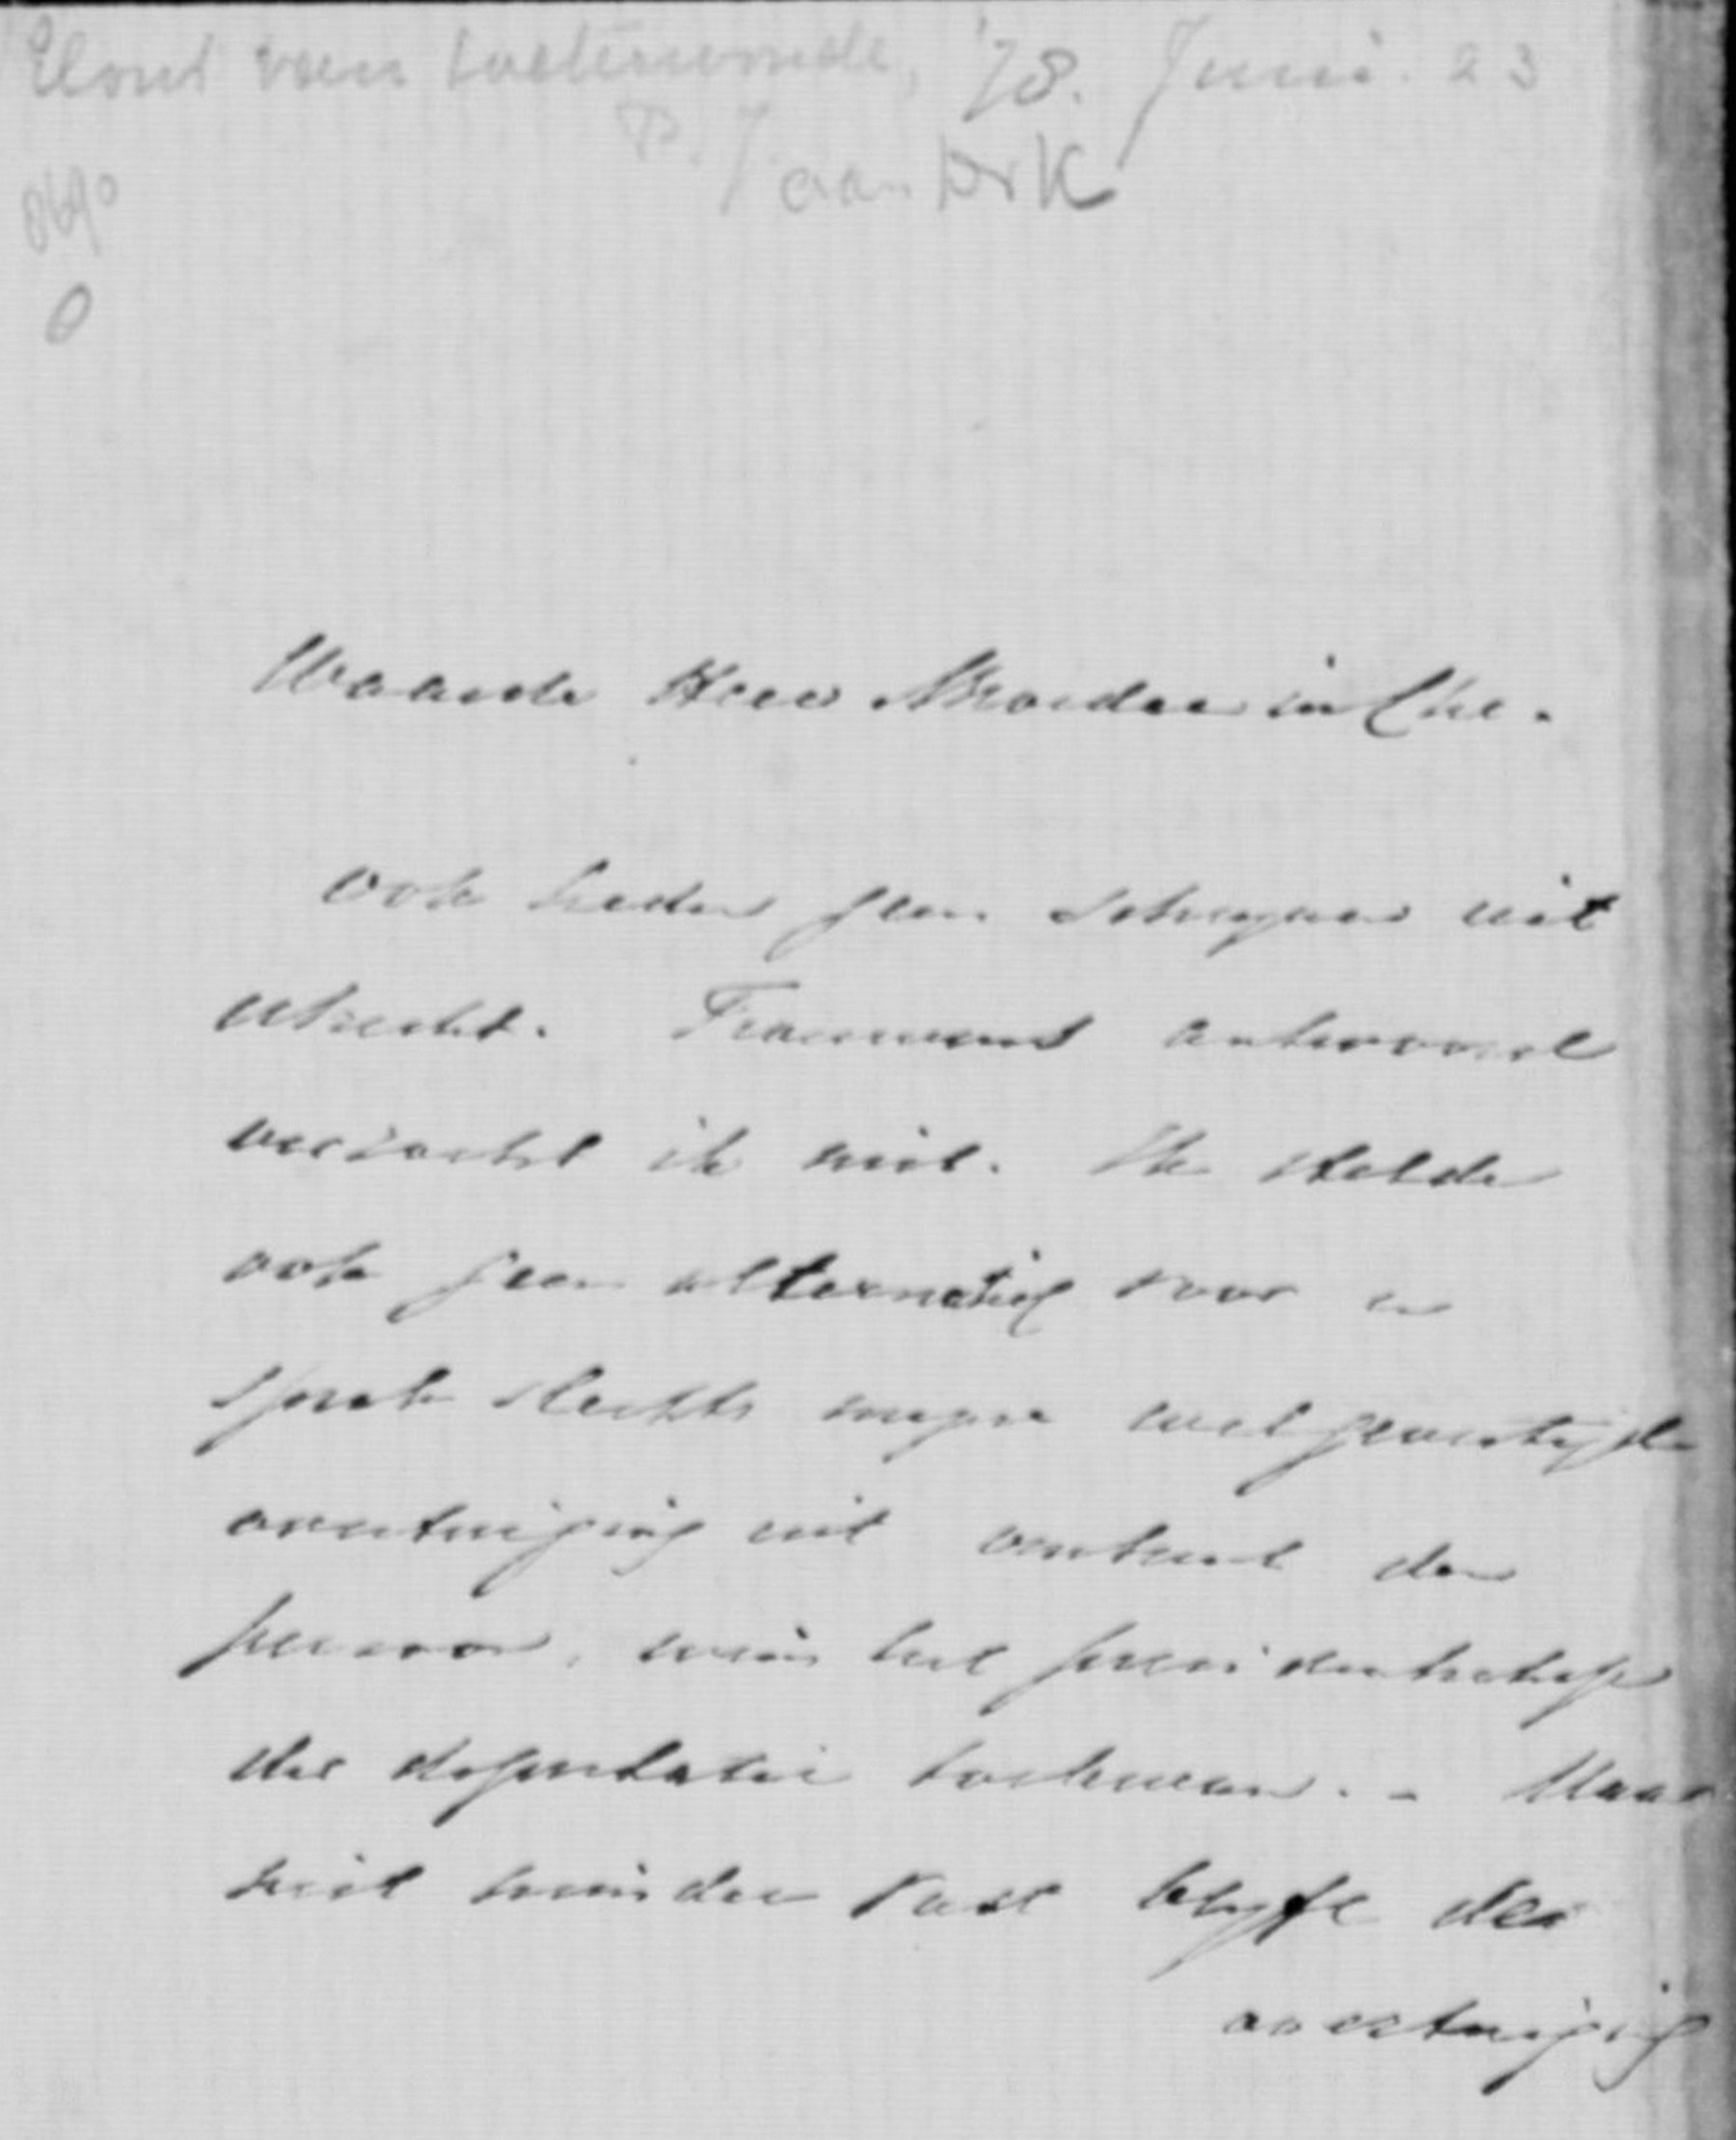 Elout van Soeterwoude, '78. Juni. 23
P. J. aan Dr K
0690
0
Waarde Heer & Broeder in Chr.
Ook heden geen schrijven uit
Utrecht. Trouwens antwoord
verzocht ik niet. Ik stelde
ook geen alternatief voor en
sprak slechts mijne welgevestigde
overtuiging uit omtrent den
persoon, wien het presidentschap
der deputatie toekwam. - Maar
niet minder vast blijft de
overtuiging